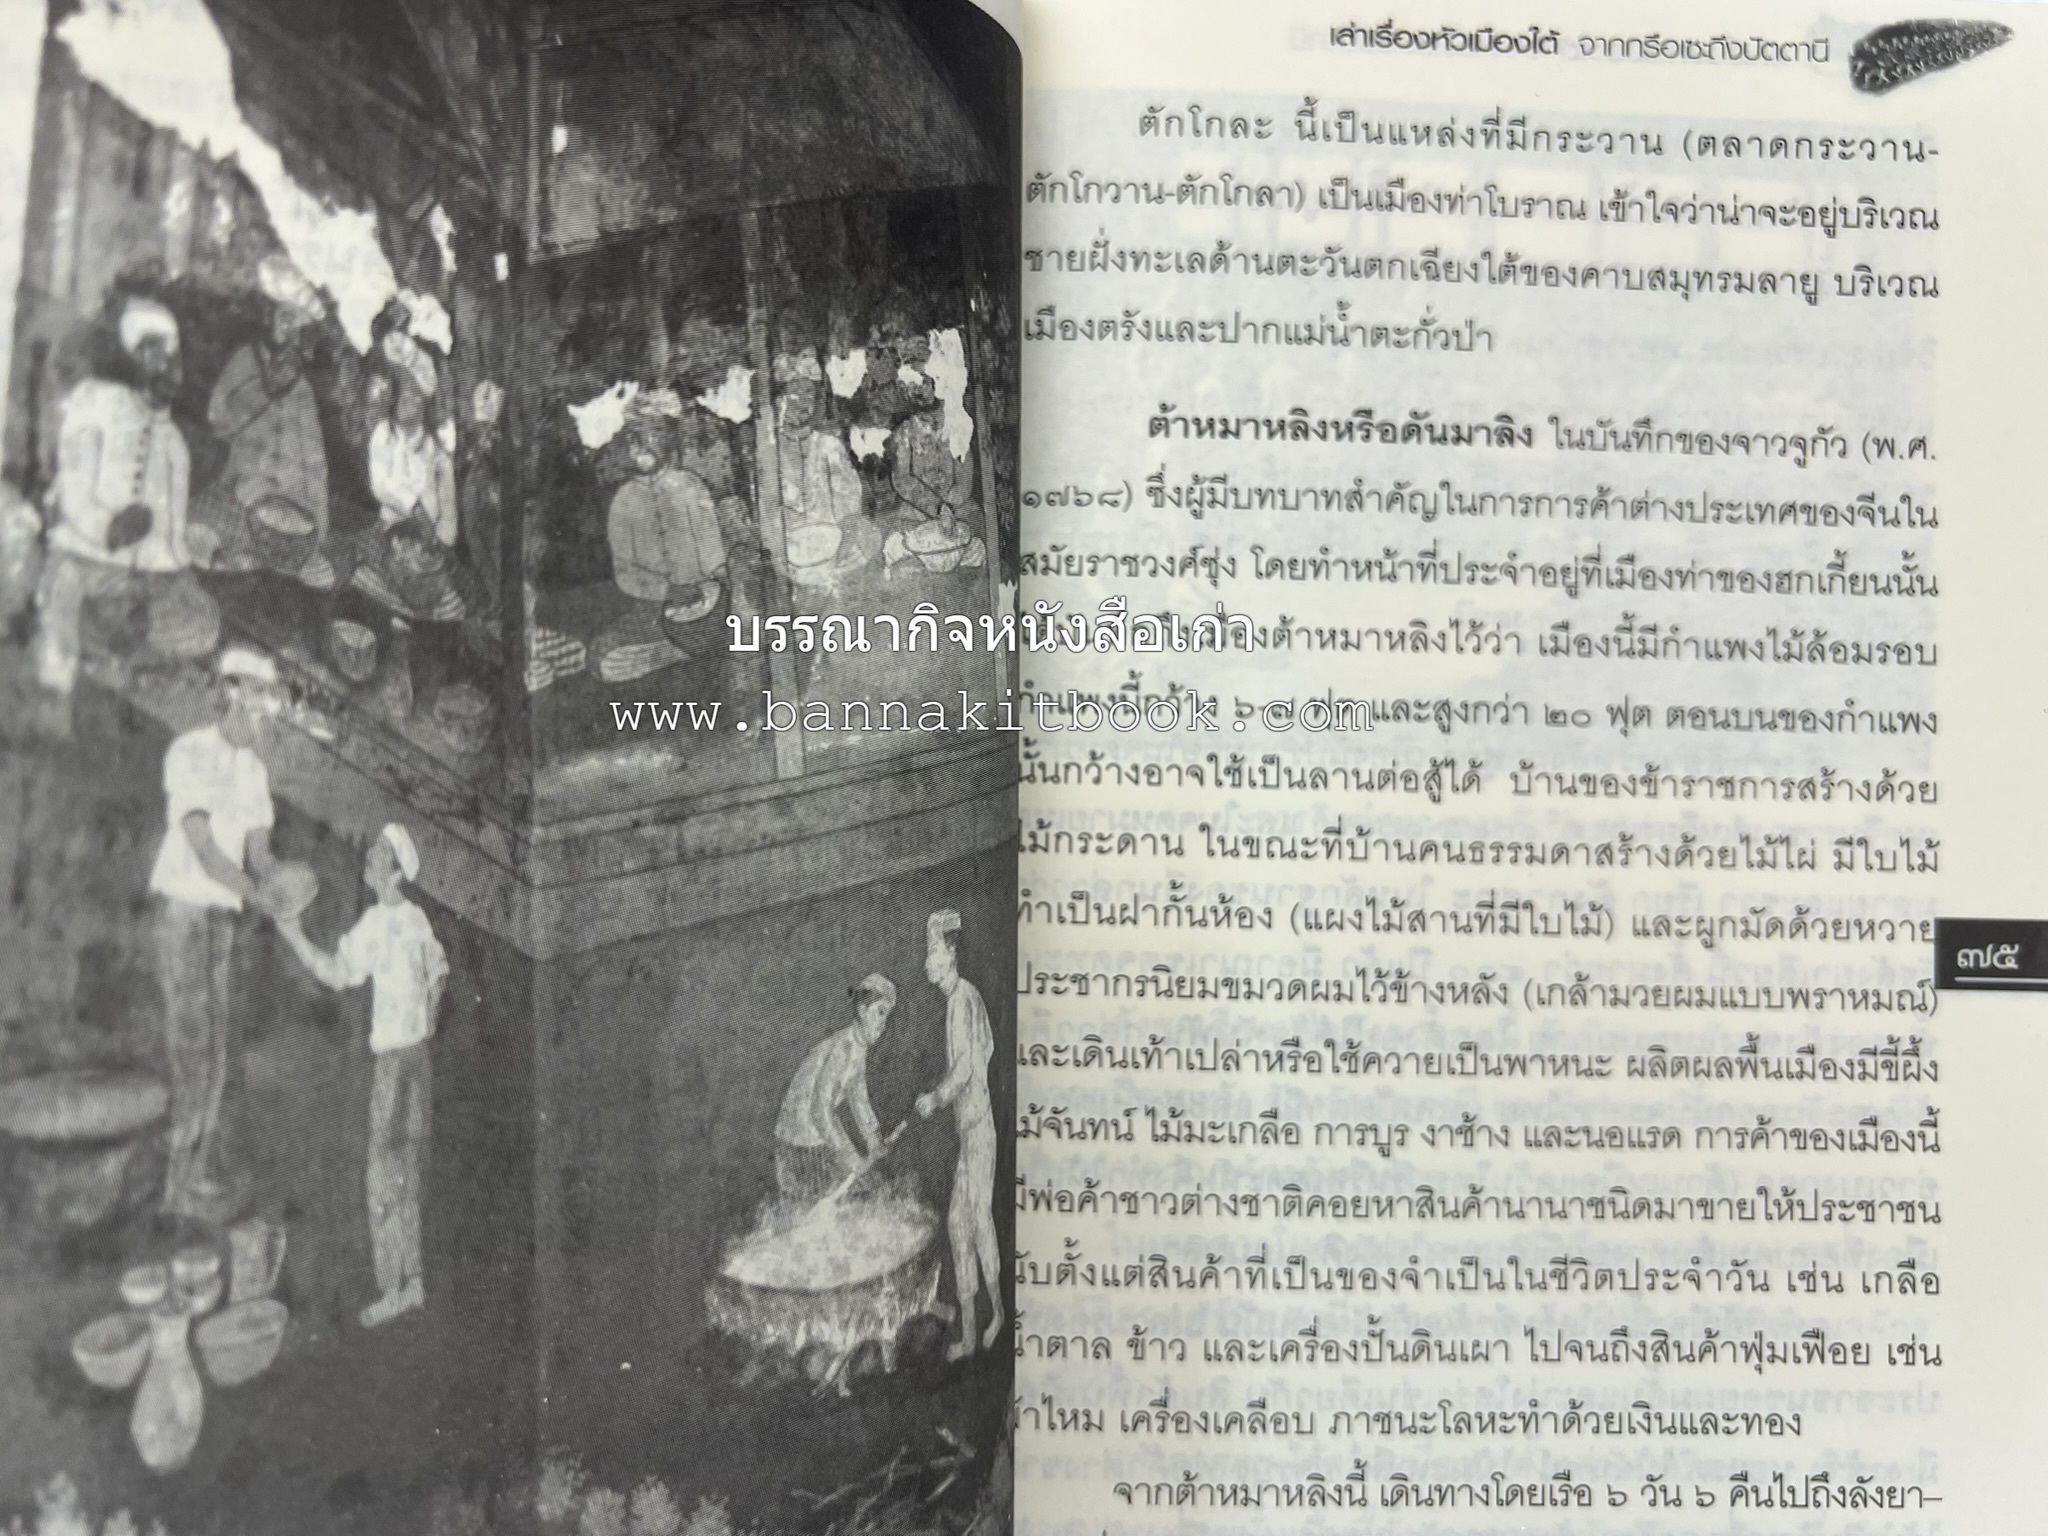 เล่าเรื่องหัวเมืองใต้ จากกรือเซะถึงปัตตานี
ตักโกละ นี้เป็นแหล่งที่มีกระวาน (ตลาดกระวาน-
ตักโกวาน-ตักโกลา) เป็นเมืองท่าโบราณ เข้าใจว่าน่าจะอยู่บริเวณ
ชายฝั่งทะเลด้านตะวันตกเฉียงใต้ของคาบสมุทรมลายู บริเวณ
เมืองตรังและปากแม่น้ำตะกั่วป่า
ต้าหมาหลิงหรือดันมาลิง ในบันทึกของจาวจูกัว (พ.ศ.
๑๗๖๘) ซึ่งผู้มีบทบาทสำคัญในการการค้าต่างประเทศของจีนใน
สมัยราชวงศ์ซุ่ง โดยทำหน้าที่ประจำอยู่ที่เมืองท่าของฮกเกี้ยนนั้น
เมืองต้าหมาหลิงไว้ว่า เมืองนี้มีกำแพงไม้ล้อมรอบ
กำแพงนี้กว้าง ๖-๗ ฟุต และสูงกว่า ๒๐ ฟุต ตอนบนของกำแพง
นั้นกว้างอาจใช้เป็นลานต่อสู้ได้ บ้านของข้าราชการสร้างด้วย
ไม้กระดาน ในขณะที่บ้านคนธรรมดาสร้างด้วยไม้ไผ่ มีใบไม้
ทำเป็นฝากั้นห้อง (แผงไม้สานที่มีใบไม้) และผูกมัดด้วยหวาย
ประชากรนิยมขมวดผมไว้ข้างหลัง (เกล้ามวยผมแบบพราหมณ์)
และเดินเท้าเปล่าหรือใช้ควายเป็นพาหนะ ผลิตผลพื้นเมืองมีขี้ผึ้ง
ไม้จันทน์ ไม้มะเกลือ การบูร งาช้าง และนอแรด การค้าของเมืองนี้
มีพ่อค้าชาวต่างชาติคอยหาสินค้านานาชนิดมาขายให้ประชาชน
นับตั้งแต่สินค้าที่เป็นของจำเป็นในชีวิตประจำวัน เช่น เกลือ
น้ำตาล ข้าว และเครื่องปั้นดินเผา ไปจนถึงสินค้าฟุ่มเฟือย เช่น
ผ้าไหม เครื่องเคลือบ ภาชนะโลหะทำด้วยเงินและทอง
จากต้าหมาหลิงนี้ เดินทางโดยเรือ ๖ วัน ๖ คืนไปถึงลังยา-
๗๕
บรรณากิจหนังสือเก่า
www.bannakitbook.com